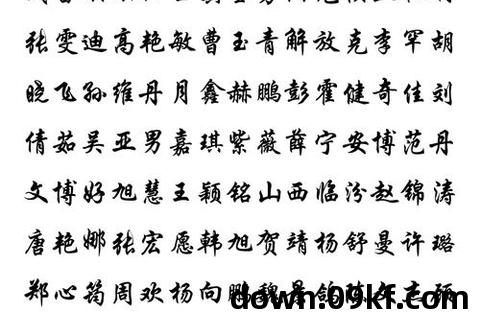 张雯迪高艳敏曹玉青解放克李罕胡
晓飞孙维丹月鑫赫鹏彭霍健奇佳刘
倩茹吴亚男嘉琪紫薇薛宁安博范丹
文博好旭慧王颖铭山西临汾赵锦涛
唐艳娜张宏愿韩旭贺靖杨舒曼许璐
郑心筠周欢杨向鹏魏
down.09kf.com